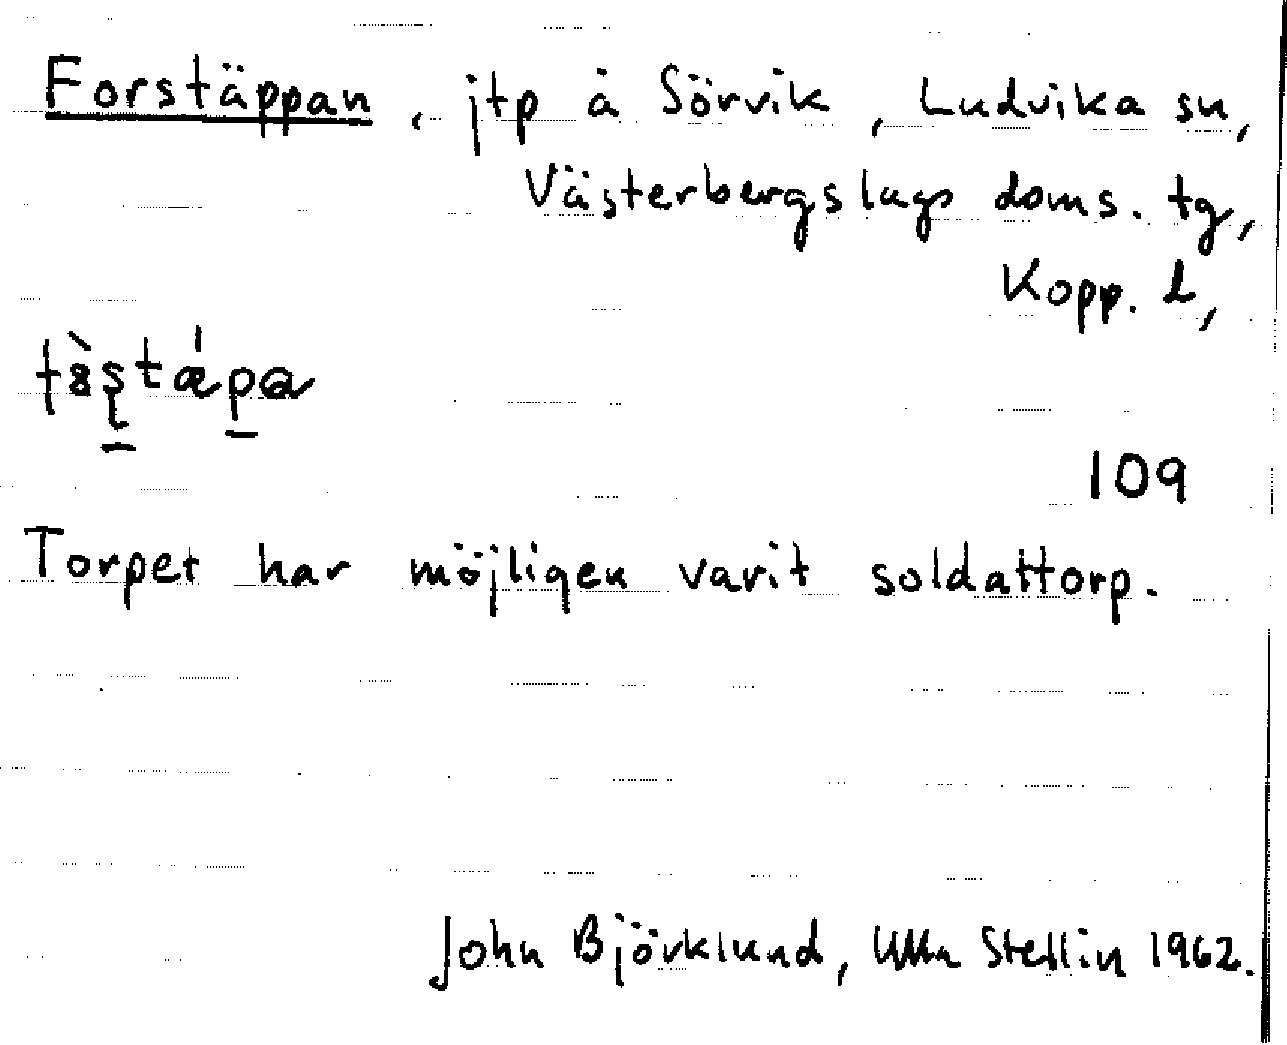 Forstäppan, jtp å Sörvik, Ludvika sn,
Västerbergslags doms. tg,
Kopp. L,
109
Torpet har möjligen varit soldattorp.
John Björklund, Ulla Stellin 1962.